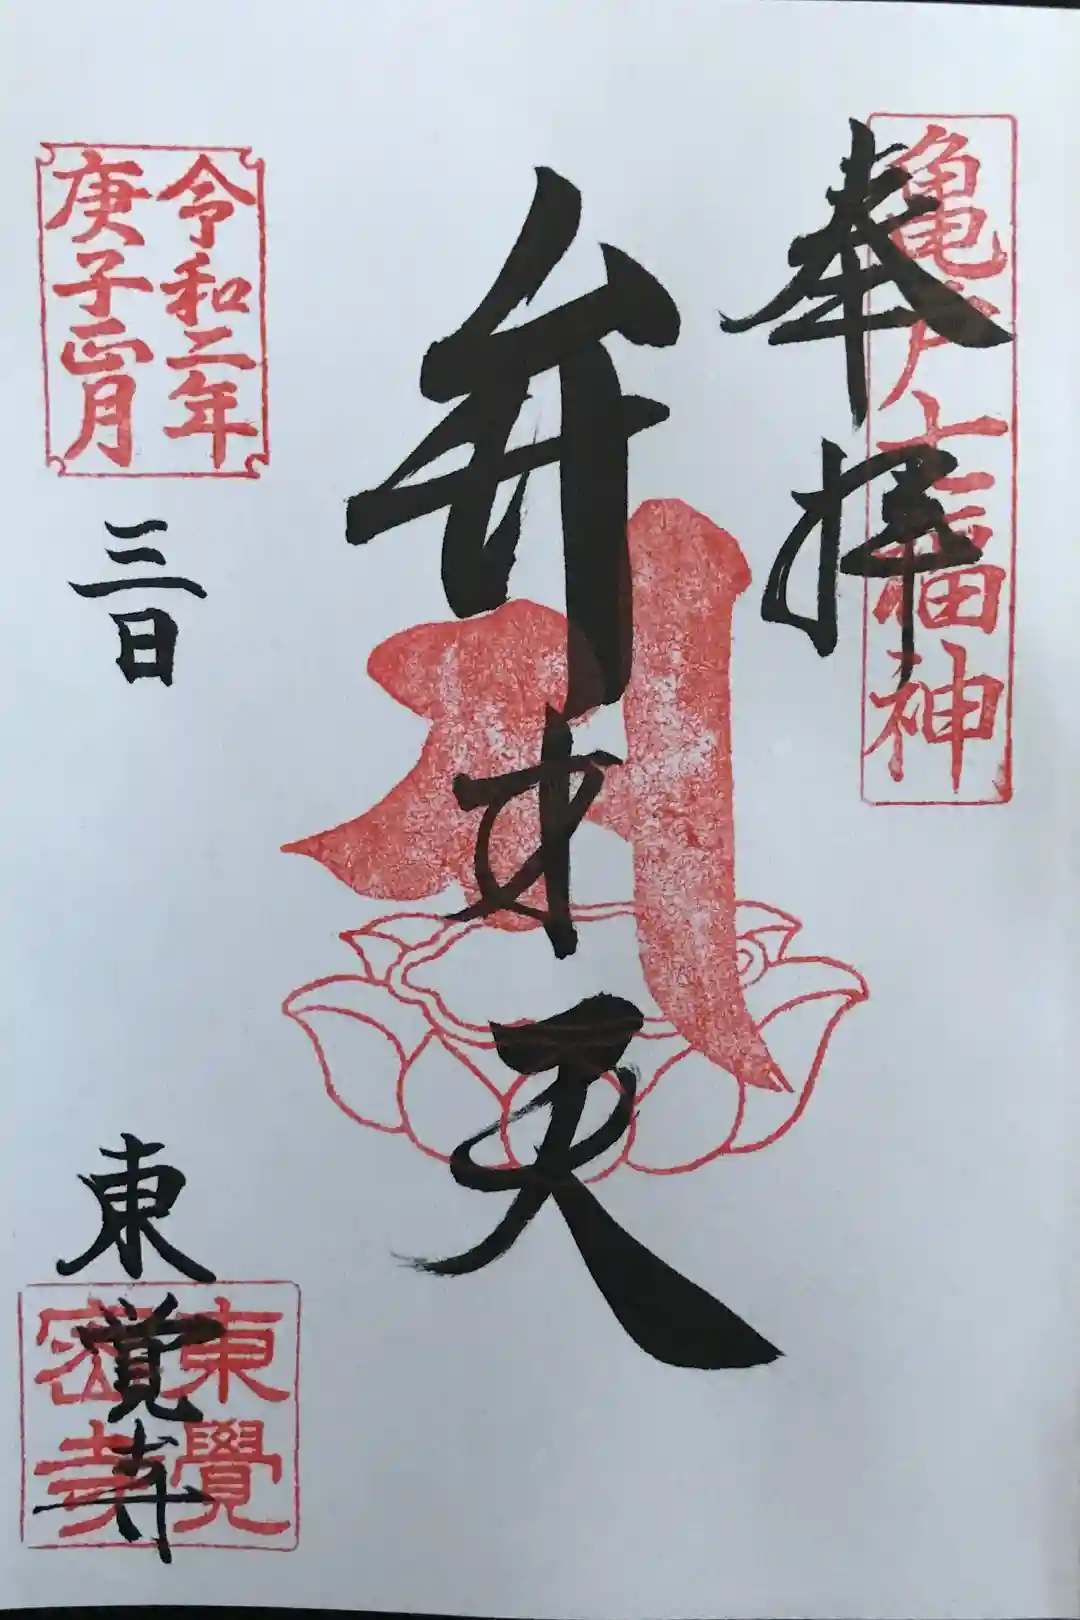 奉拝
亀戸七福神
弁才天
令和二年
庚子正月
三日
東覚寺
東覺
密寺